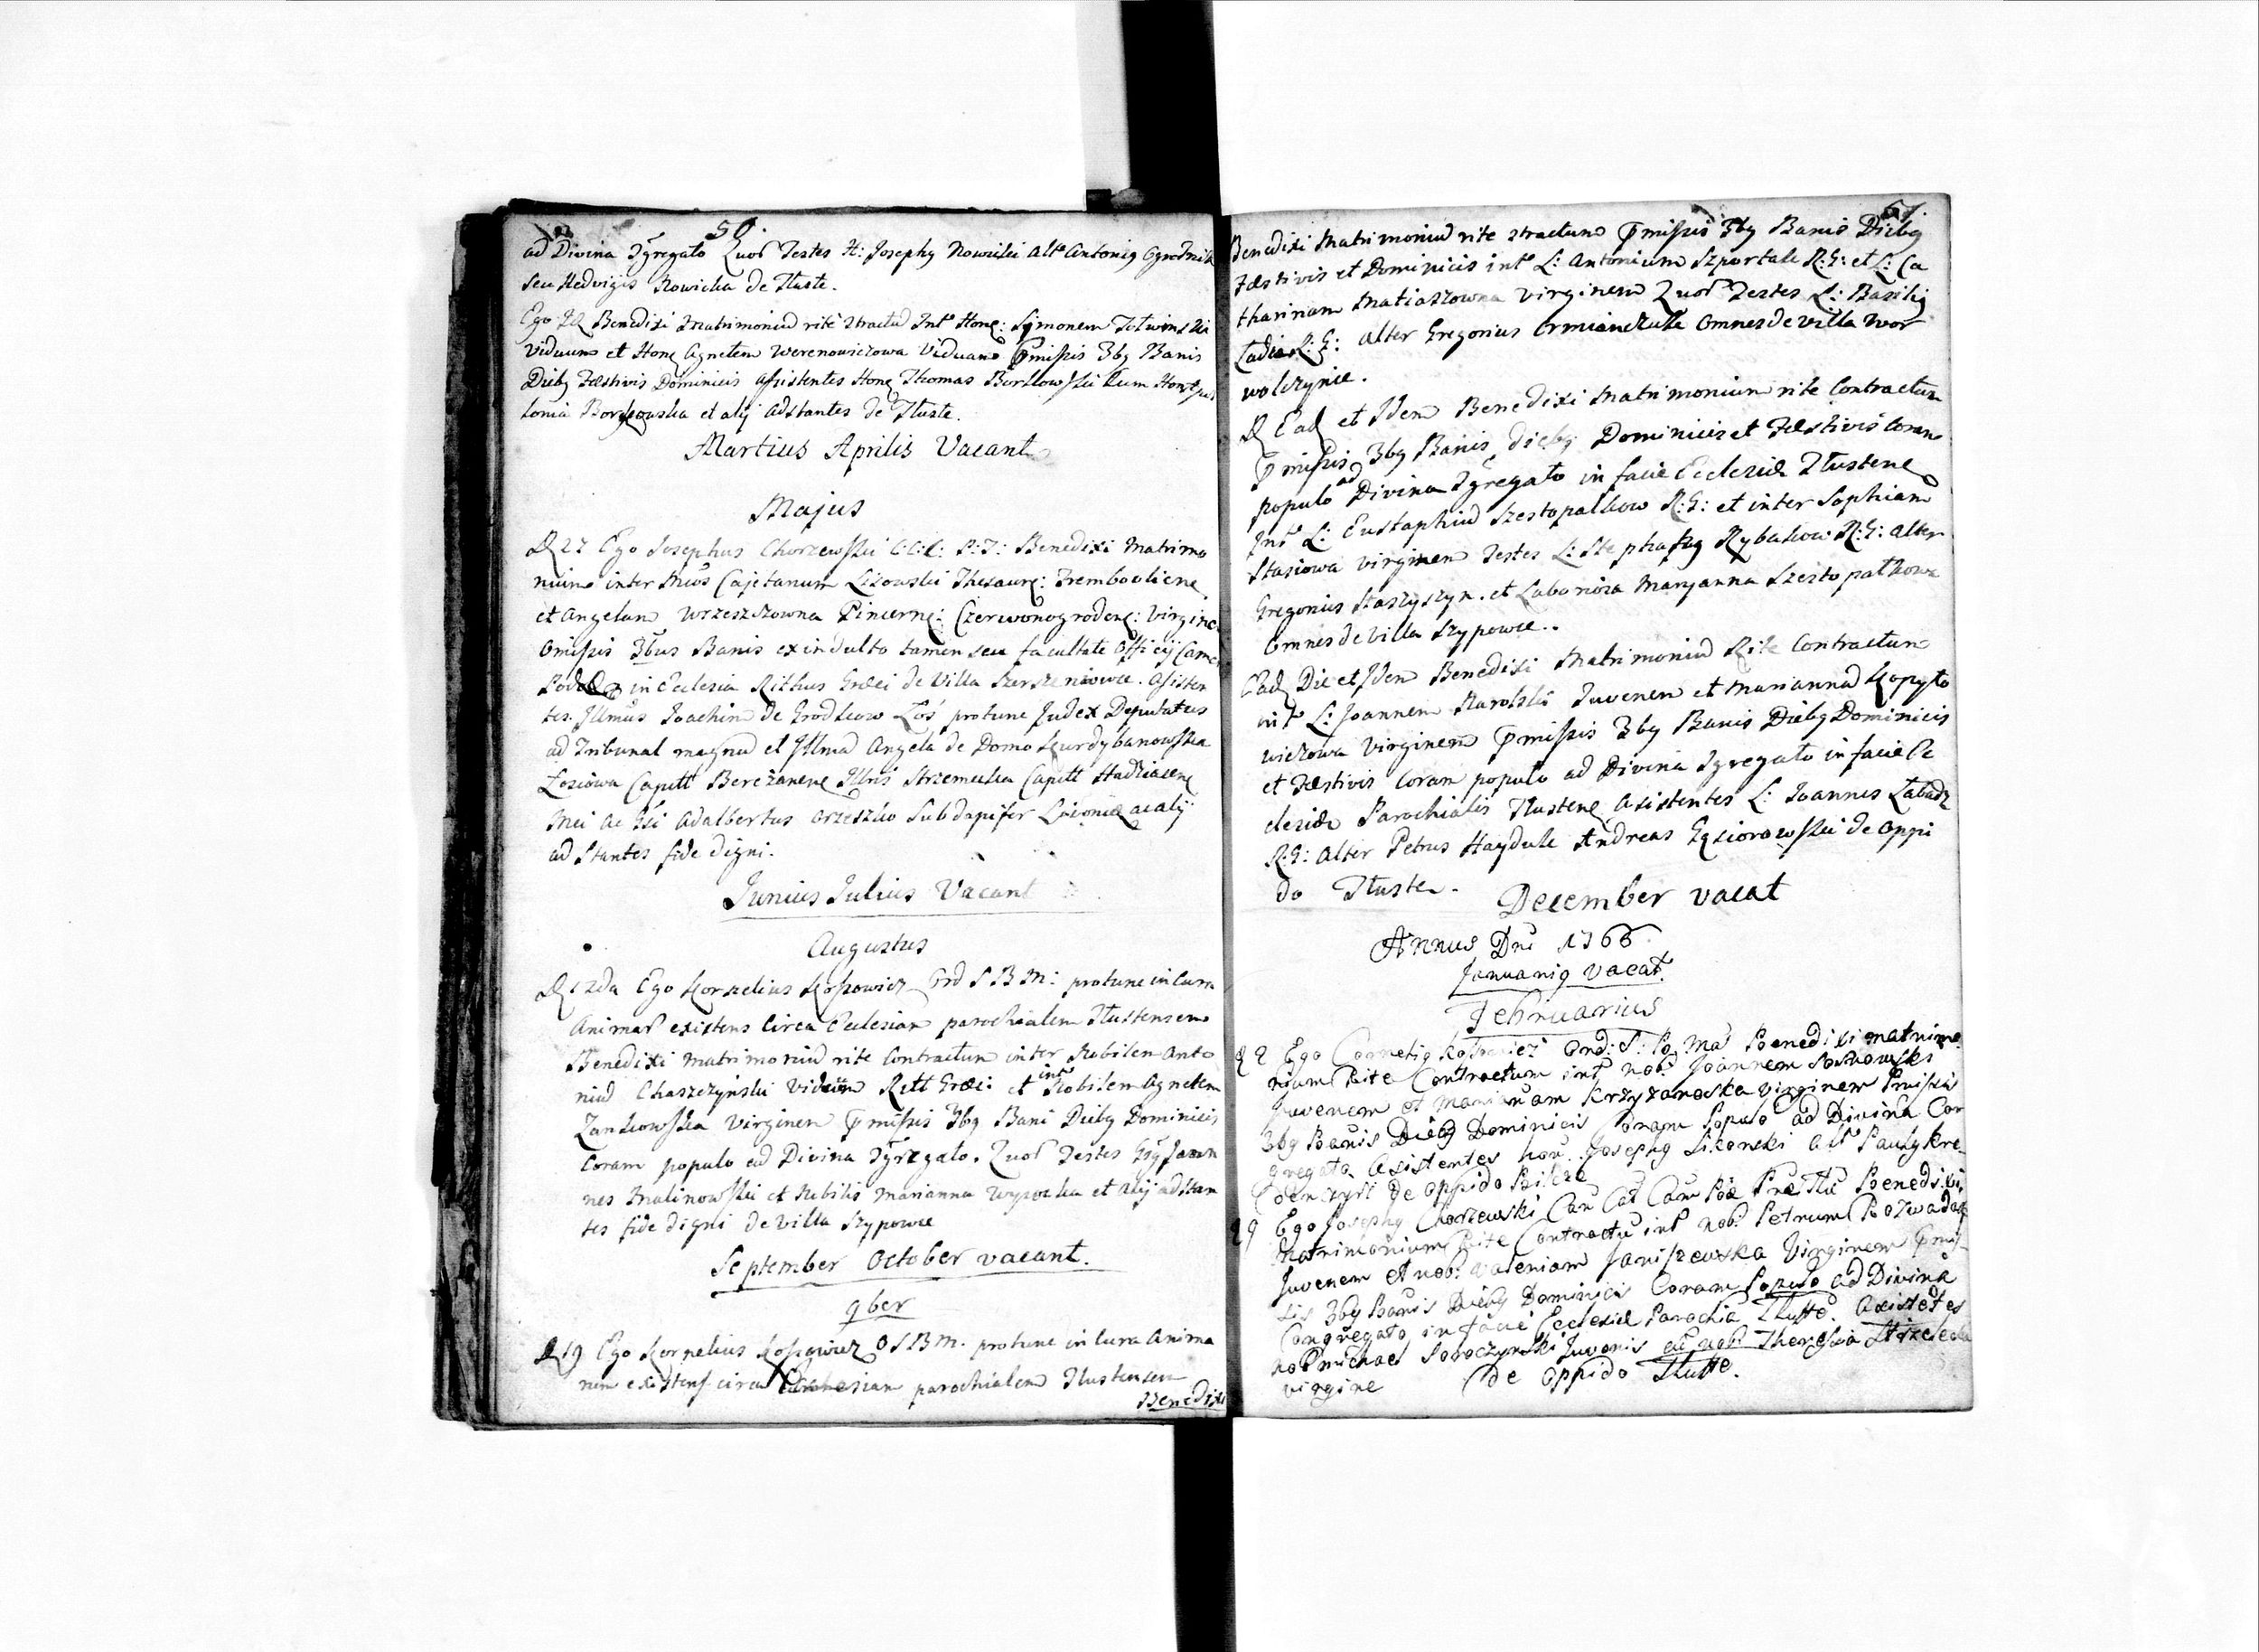 50.
ad Divina Ɔgregato Quor Testes H: Josephq Nowicki Altr Antoniq Ogrodnik
seu Hedvigis Nowicka de Tłuste.
Ego Id Benedixi Matrimoniũ ritè Ɔtractũ Intr Hone: Symonem
Viduum et Hone Agnetem Werenowiczowa Viduam Pmissis 3bq Banis
Diebq Festivis Dominicis Assistentes Hone Thomas Borkowski Cum
Borkowska et alij adstantes de Tłuste.
Martius Aprilis Vacant
Majus
D 27 Ego Josephus Chorzewski C:C:C: P:T: Benedixi Matrimo
nium inter Cajetanum Lisowski Thesaure: Trembovliene
et Angelam Wrzeszczowna Pincerne: Czerwonogrodene: Virgine
Omissis 3bus Banis ex indulto tamen seu facultate Officij
in Ecclesia Rithus Græci de Villa Szerszeniowce. Assisten
tes. Illmus Joachim de Grodkow Łoś protunc Judex Deputatus
ad Tribunal magnũ et Illma Angela de Domo Kurdybanowska
Łosiowa Capitt Bereżanene Illris Strzemeska Capitt
Adalbertus Orzeszko Subdapifer Livoniæ ac alij
ad stantes fide digni.
Junius Julius Vacant
Augustus
D 12da Ego Kornelius Kossowicz Ord S B M: protunc in Cura
Animar existens Circa Ecclesiam parochialem Tłustensem
Benedixi matrimoniũ rite Contractum inter Nobilem Anto
niũ Chaszczynski Viduum Ritt Græci et intr Nobilem Agnetem
Zankowska Virginem Pmissis 3bq Bani Diebq Dominicis
Coram populo ad Divina Ɔgregato. Quor Testes Joan
nes Malinowski et Nobilis Marianna Wysocka et alij adstan
tes fide digni de Villa Szypowce
September October vacant.
9ber
D 19 Ego Kornelius Kossowicz O S B M. protunc in Cura Anima
rum existens circa Ecclesiam parochialem Tłustensem
Benedixi
51.
Benedixi Matrimoniũ rite Ɔtractum Pmissis 3bq Banis Diebq
Festivis et Dominicis intr L: Antonium Szportak R:G: et L: Ca
tharinam Matiaszowna Virginem Quor Testes L: Basiliq
R:G: alter Gregorius Ormianczuk Omnes de Villa Wor
wolczynie.
D Ead et Idem Benedixi Matrimonium rite Contractum
Pmissis 3bq Banis diebq Dominicis et Festivis Coram
populo ad Divina Ɔgregato in facie Ecclesiæ Tłustene
Intr L: Eustaphiũ Szestopałkow R:G: et inter Sophiam
Stasiowa virginem Testes L: Rybakow R:G: alter
Gregorius Staszyszyn. et Laboriosa Maryanna Szestopałkowa
Omnes de Villa Szypowce..
Ead Die et Idem Benedixi Matrimoniũ Rite Contractum
intr L: Joannem Juvenem et Mariannã Kopyto
wiczowa Virginem Pmissis 3bq Banis Diebq Dominicis
et Festivis Coram populo ad Divina Ɔgregato in facie Ec
clesiæ Parochialis Tłustene Assistentes L: Joannes
R:G: alter Petrus Hayduk Andreas Gąsiorowski de Oppi
do Tłuste.
December vacat
Annus Dni 1766
Januariq vacat.
Februarius
D 2 Ego Corneliq Kossowicz Ord: S: Ba Ma Benedixi matrimo
nium Rite Contractum intr nob: Joannem Sosnowski
Juvenem et Mariannam Krzyżanoska Virginem Pmissis
3bq Banis Diebq Dominicis Coram Populo ad Divina Con
gregato Assistentes hon. Josephq Sikorski altr Paulq
de Oppido Bilcze
29 Ego Josephq Chorzewski Can Cat Cam Benedixi
Matrimonium Rite Contractũ intr Nob: Petrum Rozwadow
Juvenem et nob: Valeriam Janiszewska Virginem Pmis
sis 3bq Banis Diebq Dominicis Coram Populo ad Divina
Congregato in facie Ecclesiæ Parochia Tłuste. Assistẽtes
nob Michael Soroczynski Juvenis et nob: Theresia
virgine de Oppido Tłuste.